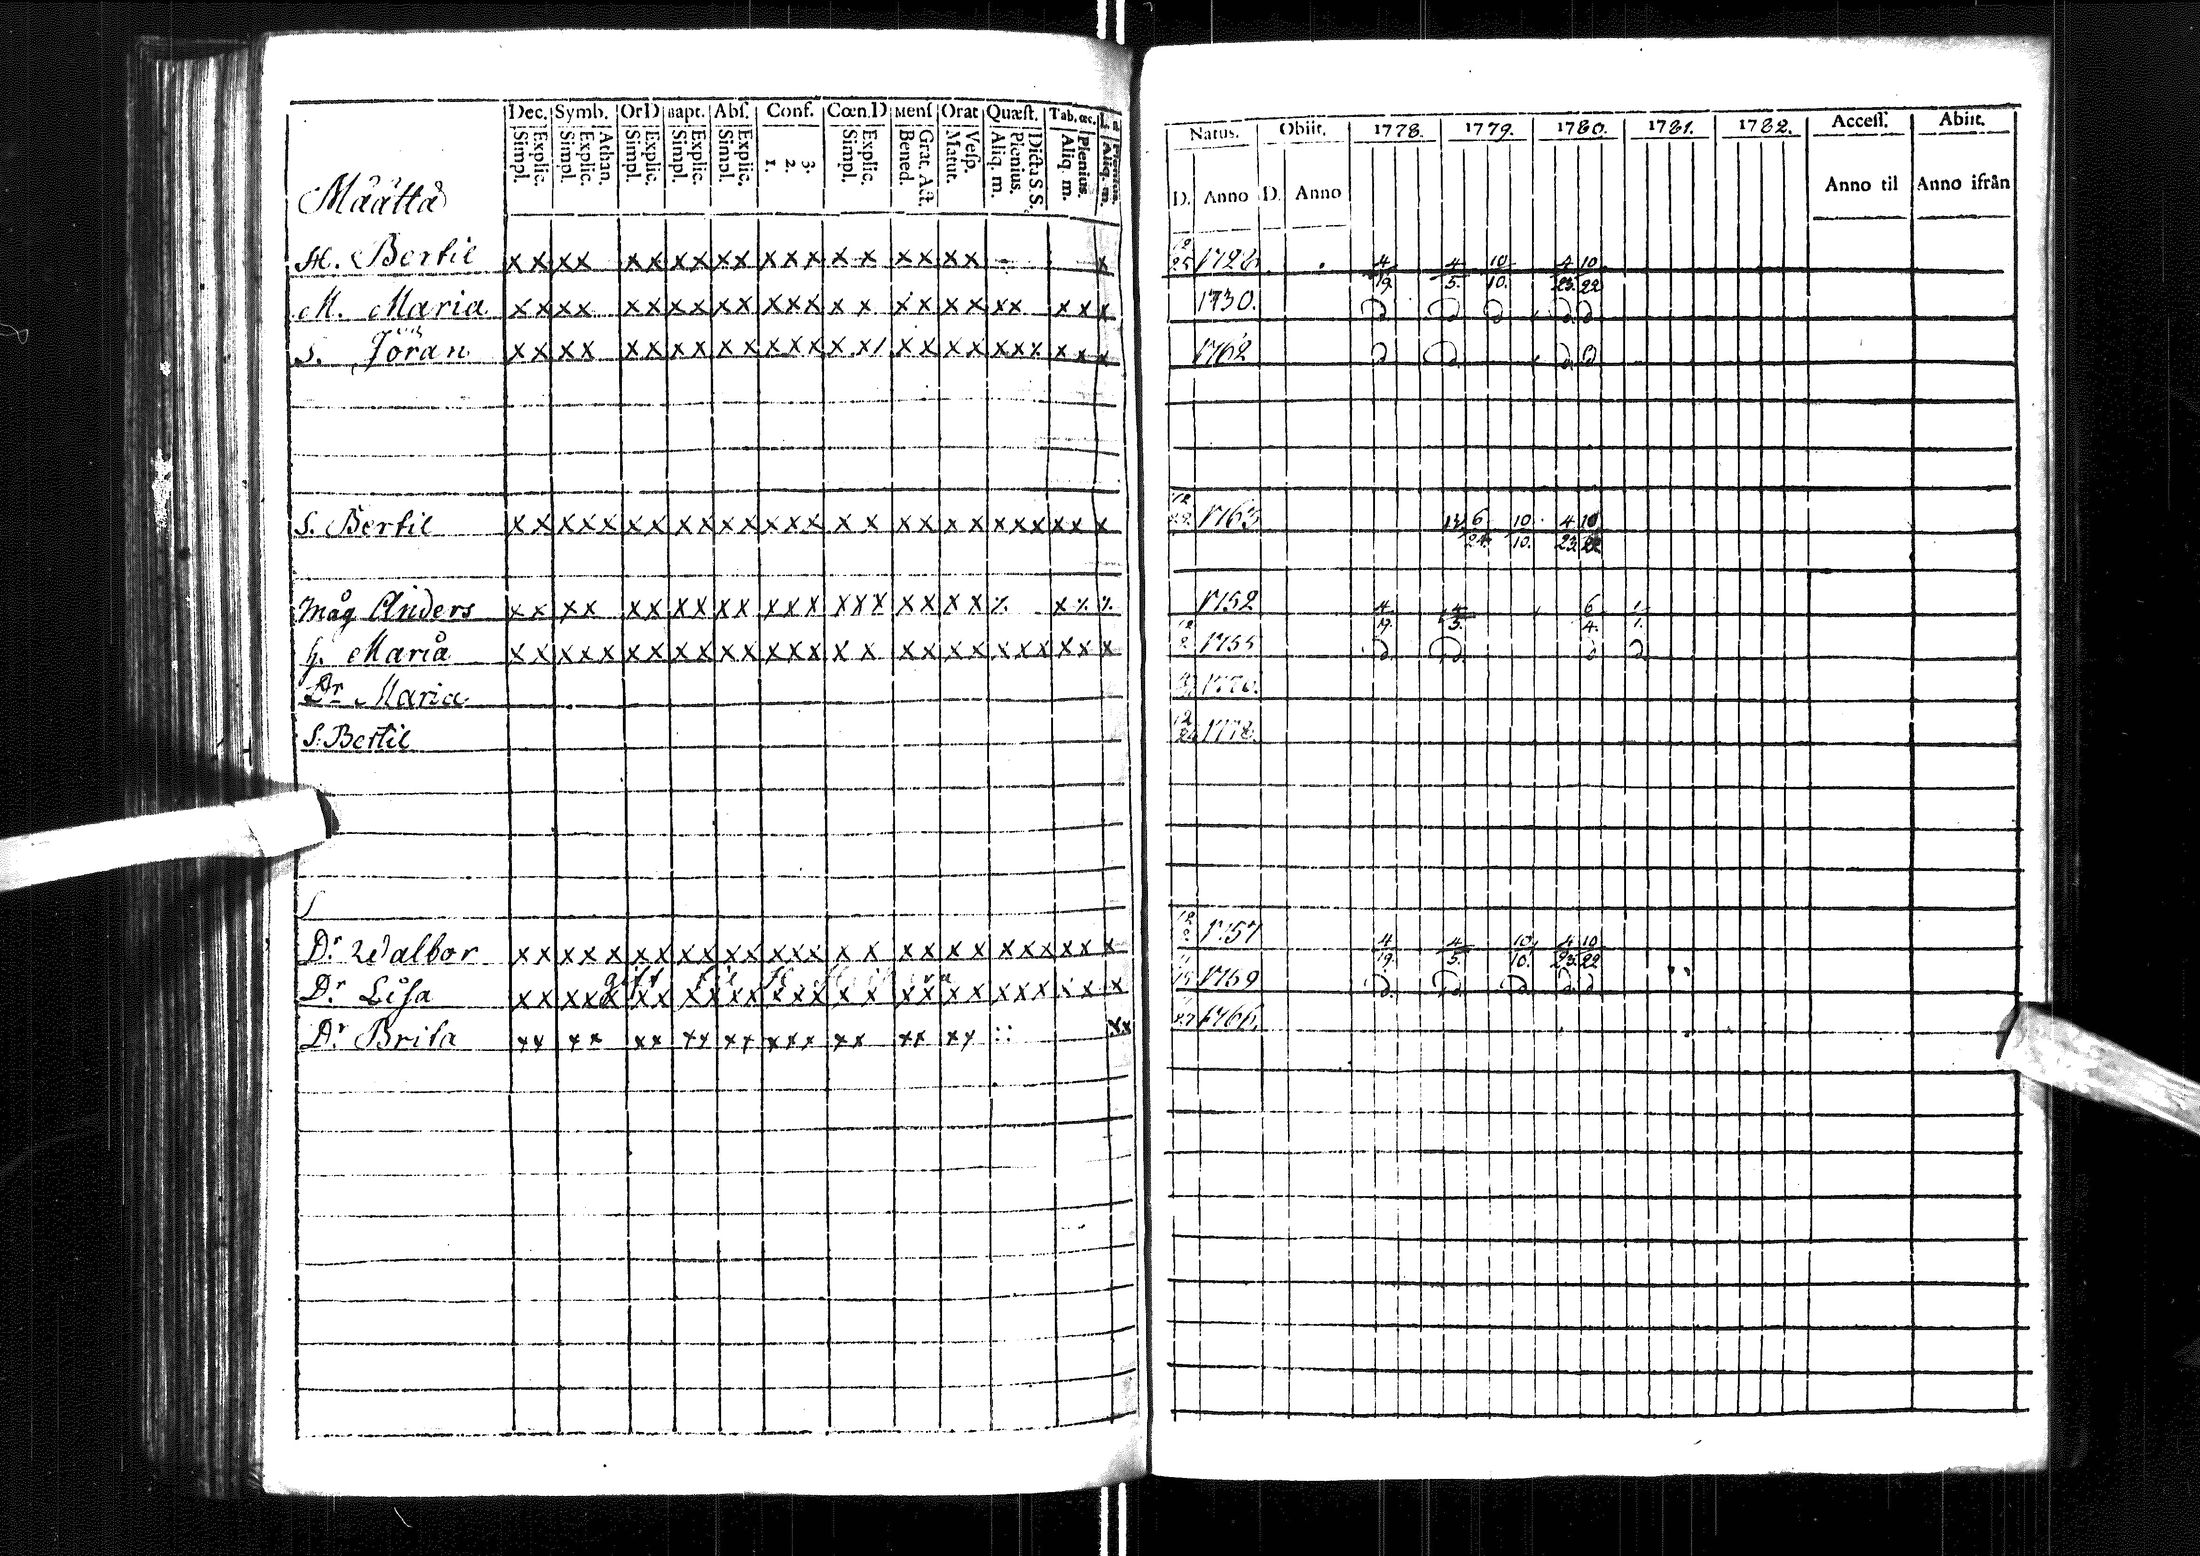 Dec. Symb. OrD Bapt. Abſ. Conf. Cœn.D Menſ Orat Quæſt. Tab. œc.
Simpl. Explic. Simpl. Explic. Athan. Simpl. Explic. Simpl. Explic. Simpl. Explic. 1. 2. 3. Simpl. Explic. Bened. Grat. Act. Matut. Veſp. Aliq. m. Plenius. Dicta S.S. Aliq. m. Plenius. Aliq. m.
Määttä
H. Bertil x x x x x x x x x x x x x x x x x x x x
M. Maria x x x x x x x x x x x x x x x x x x x x x x x x
S. Jöran x x x x x x x x x x x x x x x x x x x x x x x
S. Bertil x x x x x x x x x x x x x x x x x x x x x x x x x x
Måg Anders x x x x x x x x x x x x x x x x x x x x
H. Maria x x x x x x x x x x x x x x x x x x x x x x x x x x
Dr Maria
S. Bertil
Dr Walbor x x x x x x x x x x x x x x x x x x x x x x x x x x
gift
Dr Lisa x x x x x x x x x x x x x x x x x x x x x x x x x x
Dr Brita x x x x x x x x x x x x x x x x x x x :: x x
Natus. Obiit. 1778. 1779. 1780. 1781. 1782. Acceſſ. Abiit.
D. Anno D. Anno Anno til Anno ifrån
4/19. 4/5. 10/10. 4/23. 10/22
1730. d. d. d d. d
1762 d d. d. d
1763 6/24. 10/10. 4/23. 10/22
1752 4/19. 4/5. 6/4. 1/1.
1755 d. d. d d.
12 1778.
1757 4/19. 4/5. 10/10. 4/23. 10/22
1759 d. d. d. d. d.
1766.